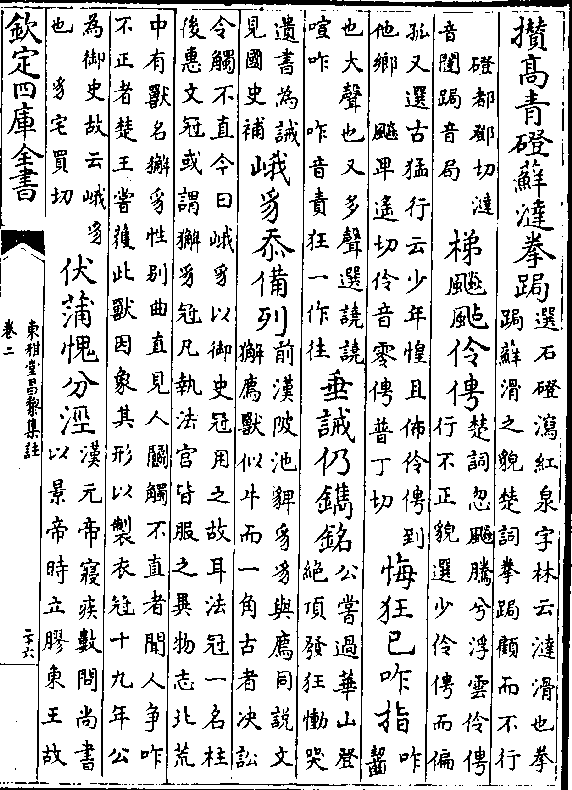 攅高青磴蘚澾拳跼
選石磴瀉紅泉字林云澾滑也拳
跼蘚滑之貌楚詞拳跼顧而不行
磴都鄧切澾
音闥跼音局
梯飈颭伶俜
楚詞忽飈騰兮浮雲伶俜
行不正貌選少伶俜而偏
孤又選古猛行云少年惶且佈伶俜到
他鄉 飈卑遙切伶音零俜普丁切
悔狂已咋指
咋
齧
也大聲也又多聲選譊譊
喧咋 咋音責狂一作往
垂誡仍鐫銘
公嘗過華山登
絶頂發狂慟哭
遺書為誡
見國史補
峨豸忝備列
前漢陂池貏豸豸與廌同説文
獬廌獸似牛而一角古者决訟
令觸不直今曰峨豸以御史冠用之故耳法冠一名柱
後惠文冠或謂獬豸冠凡執法官皆服之異物志北荒
中有獸名獬豸性别曲直見人鬬觸不直者聞人争咋
不正者楚王嘗獲此獸因象其形以製衣冠十九年公
為御史故云峨豸
也 豸宅買切
伏蒲愧分涇
漢元帝寢疾數問尚書
以景帝時立膠東王故
欽定四庫全書
東雅堂昌黎集註
卷二
二十六